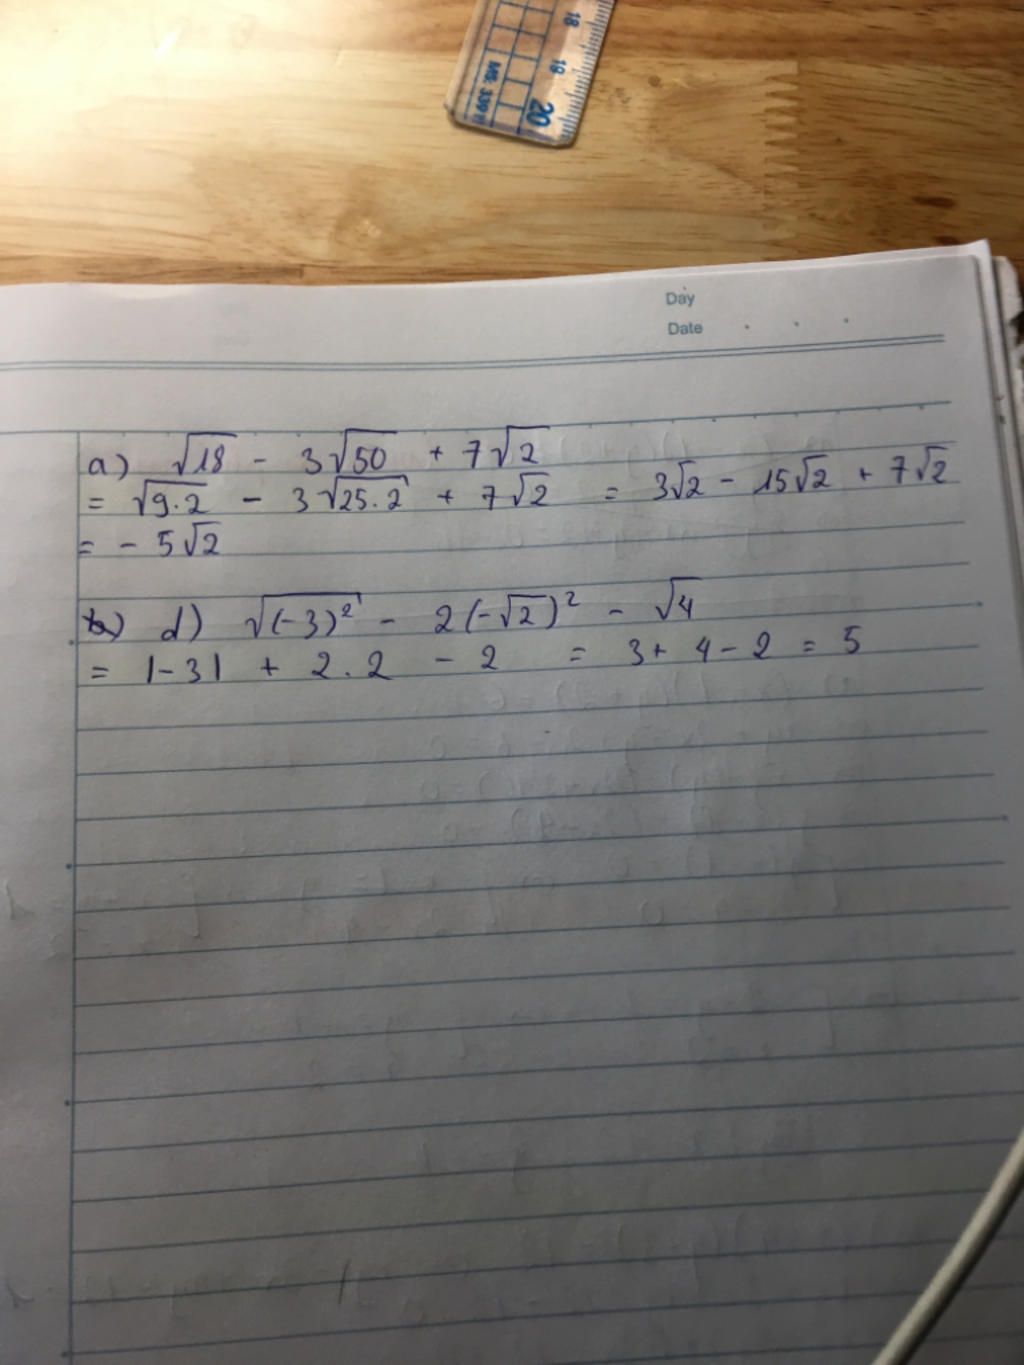 18
19
20
MS: 339
Day
Date
a) √18 - 3√50 + 7√2
= √9.2 - 3√25.2 + 7√2 = 3√2 - 15√2 + 7√2
= - 5√2
d) √(-3)² - 2(-√2)² - √4
= |-3| + 2.2 - 2 = 3+ 4-2 = 5